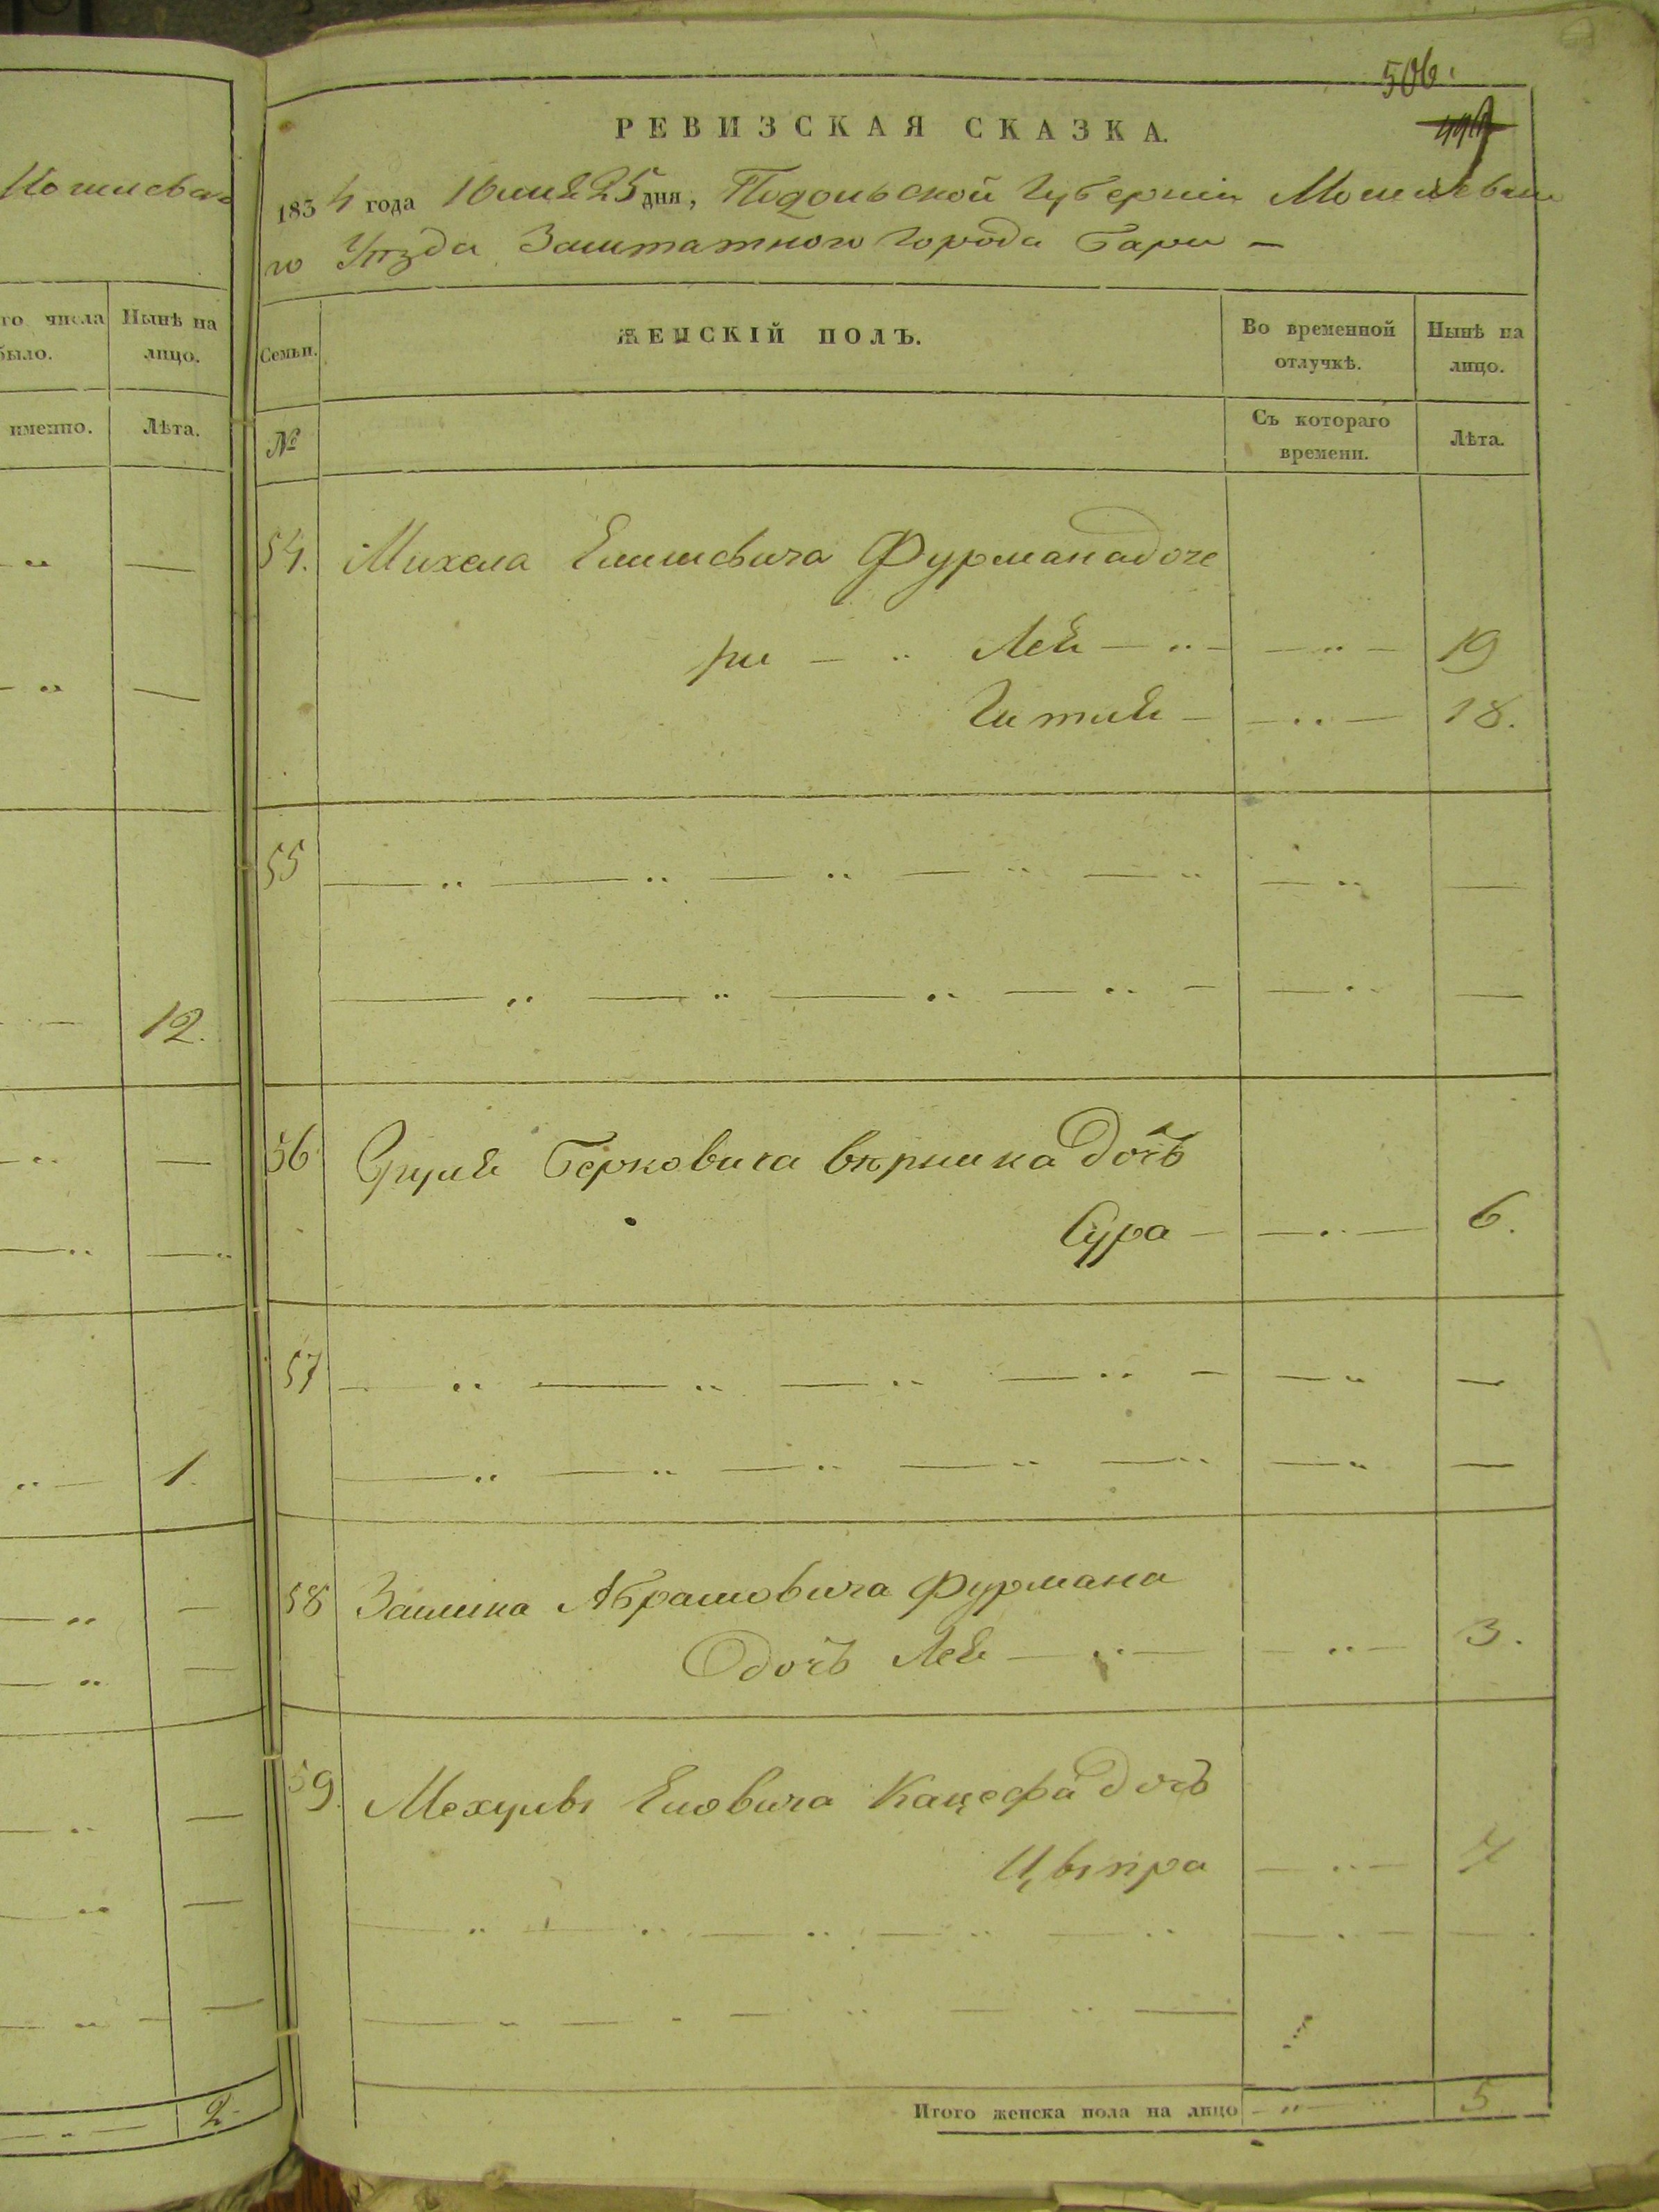 Могилевска
го числа
было.
Нынѣ на
лицо.
именно.
Лѣта.
12.
1.
2.
506.
РЕВИЗСКАЯ СКАЗКА.
1834 года Июня 25 дня, Подольской Губерніи Могилевска
го Уѣзда Заштатного Города Бара —
Семьи.
ЖЕНСКІЙ ПОЛЪ.
Во временной
отлучкѣ.
Нынѣ на
лицо.
№
Съ котораго
времени.
Лѣта.
54. Михеля Фурмана доче
ри — Лея — 19
Гителя — 18.
55
56 Берковича дочь
Сура — 6.
57
58 Абрамовича Фурмана
дочь Лея — 3.
59. Кацефа дочь
Цыпра 7
Итого женска пола на лицо 5